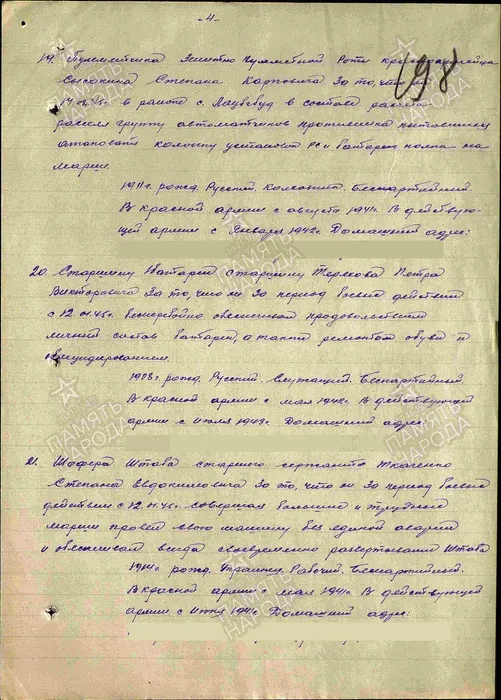 - 4 -
198
19. Пулеметчика Зенитно Пулеметной Роты красноармейца
Сысокина Степана Карповича За то, что он
в районе с. в составе расчета
рассеял группу автоматчиков противника пытавшихся
атаковать колонну установок РС и батарею полка на
марше.
1911 г. рожд. Русский. Колхозник. Беспартийный.
В Красной армии с августа 1941 г. В действую-
щей армии с Января 1942 г. Домашний адрес:
20. Старшину батареи старшину Терехова Петра
Викторовича За то, что он За период боевых действий
с 12.01.45 г. бесперебойно обеспечивал продовольствием
личный состав батареи, а также ремонтом обуви и
обмундированием.
1908 г. рожд. Русский. Служащий. Беспартийный.
В Красной армии с мая 1942 г. В действующей
армии с Июля 1943 г. Домашний адрес:
21. Шофера Штаба старшего сержанта Ткаченко
Степана Евдокимовича За то, что он За период боевых
действий с 12.01.45 г. совершая большие и трудные
марши провел свою машину без единой аварии
и обеспечивал всегда своевременно развертывание Штаба
1914 г. рожд. Украинец. Рабочий. Беспартийный.
В Красной армии с мая 1941 г. В действующей
армии с Июня 1941 г. Домашний адрес:
ПАМЯТЬ НАРОДА